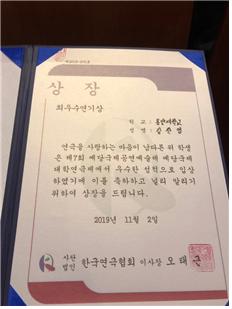 상 장
최우수연기상
학 교 :
성 명 :
연극을 사랑하는 마음이 남다른 위 학생
은 제7회 예당국제공연예술제 예당국제
대학연극제에서 우수한 성적으로 입상
하였기에 이를 축하하고 널리 알리기
위하여 상장을 드립니다.
2019년 11월 2일
사단
법인 한국연극협회 이사장 오 태 근